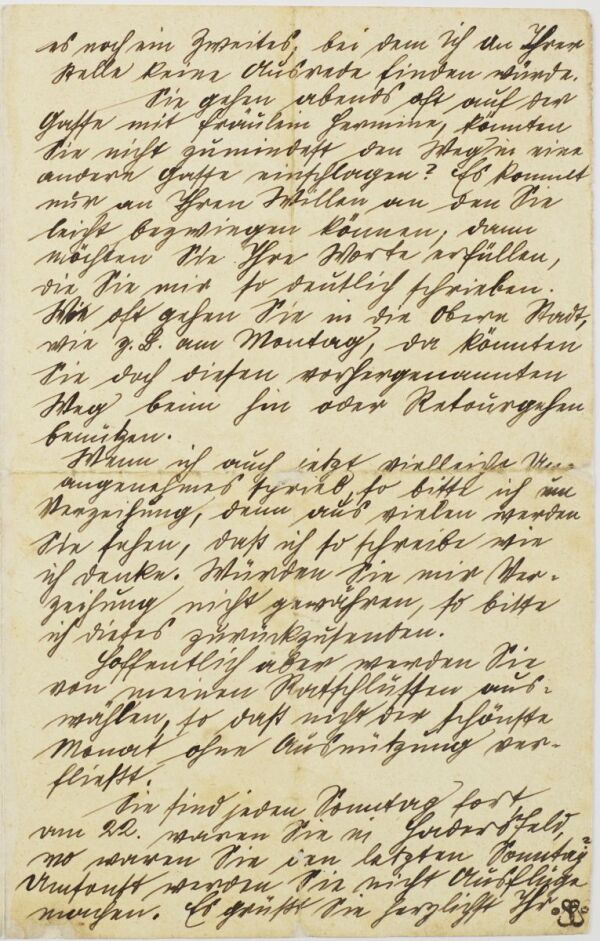 es noch ein Zweites, bei dem ich an Ihrer
Stelle keine Ausrede finden würde.
Sie gehen abends oft auf der
Gasse mit Fräulein Hermine, könnten
Sie nicht zumindest den Weg in eine
andere Gasse einschlagen? Es kommt
nur an Ihren Willen an den Sie
leicht bezwingen können, dann
möchten Sie Ihre Worte erfüllen,
die Sie mir so deutlich schrieben.
Wie oft gehen Sie in die obere Stadt,
wie z. B. am Montag, da könnten
Sie doch diesen vorhergenannten
Weg beim hin oder Retourgehen
benützen.
Wenn ich auch jetzt vielleicht Un-
angenehmes schrieb, so bitte ich um
Verzeihung, denn aus vielen werden
Sie sehen, daß ich so schreibe wie
ich denke. Würden Sie mir Ver-
zeihung nicht gewähren, so bitte
ich dieses zurückzusenden.
Hoffentlich aber werden Sie
von meinen Ratschlüssen aus-
wählen, so daß nicht der schönste
Monat ohne Ausnützung ver-
fließt.
Sie sind jeden Sonntag fort,
am 22. waren Sie in Hadersfeld,
wo waren Sie den letzten Sonntag?
Umsonst werden Sie nicht Ausflüge
machen. Es grüßt Sie herzlichst Ihr